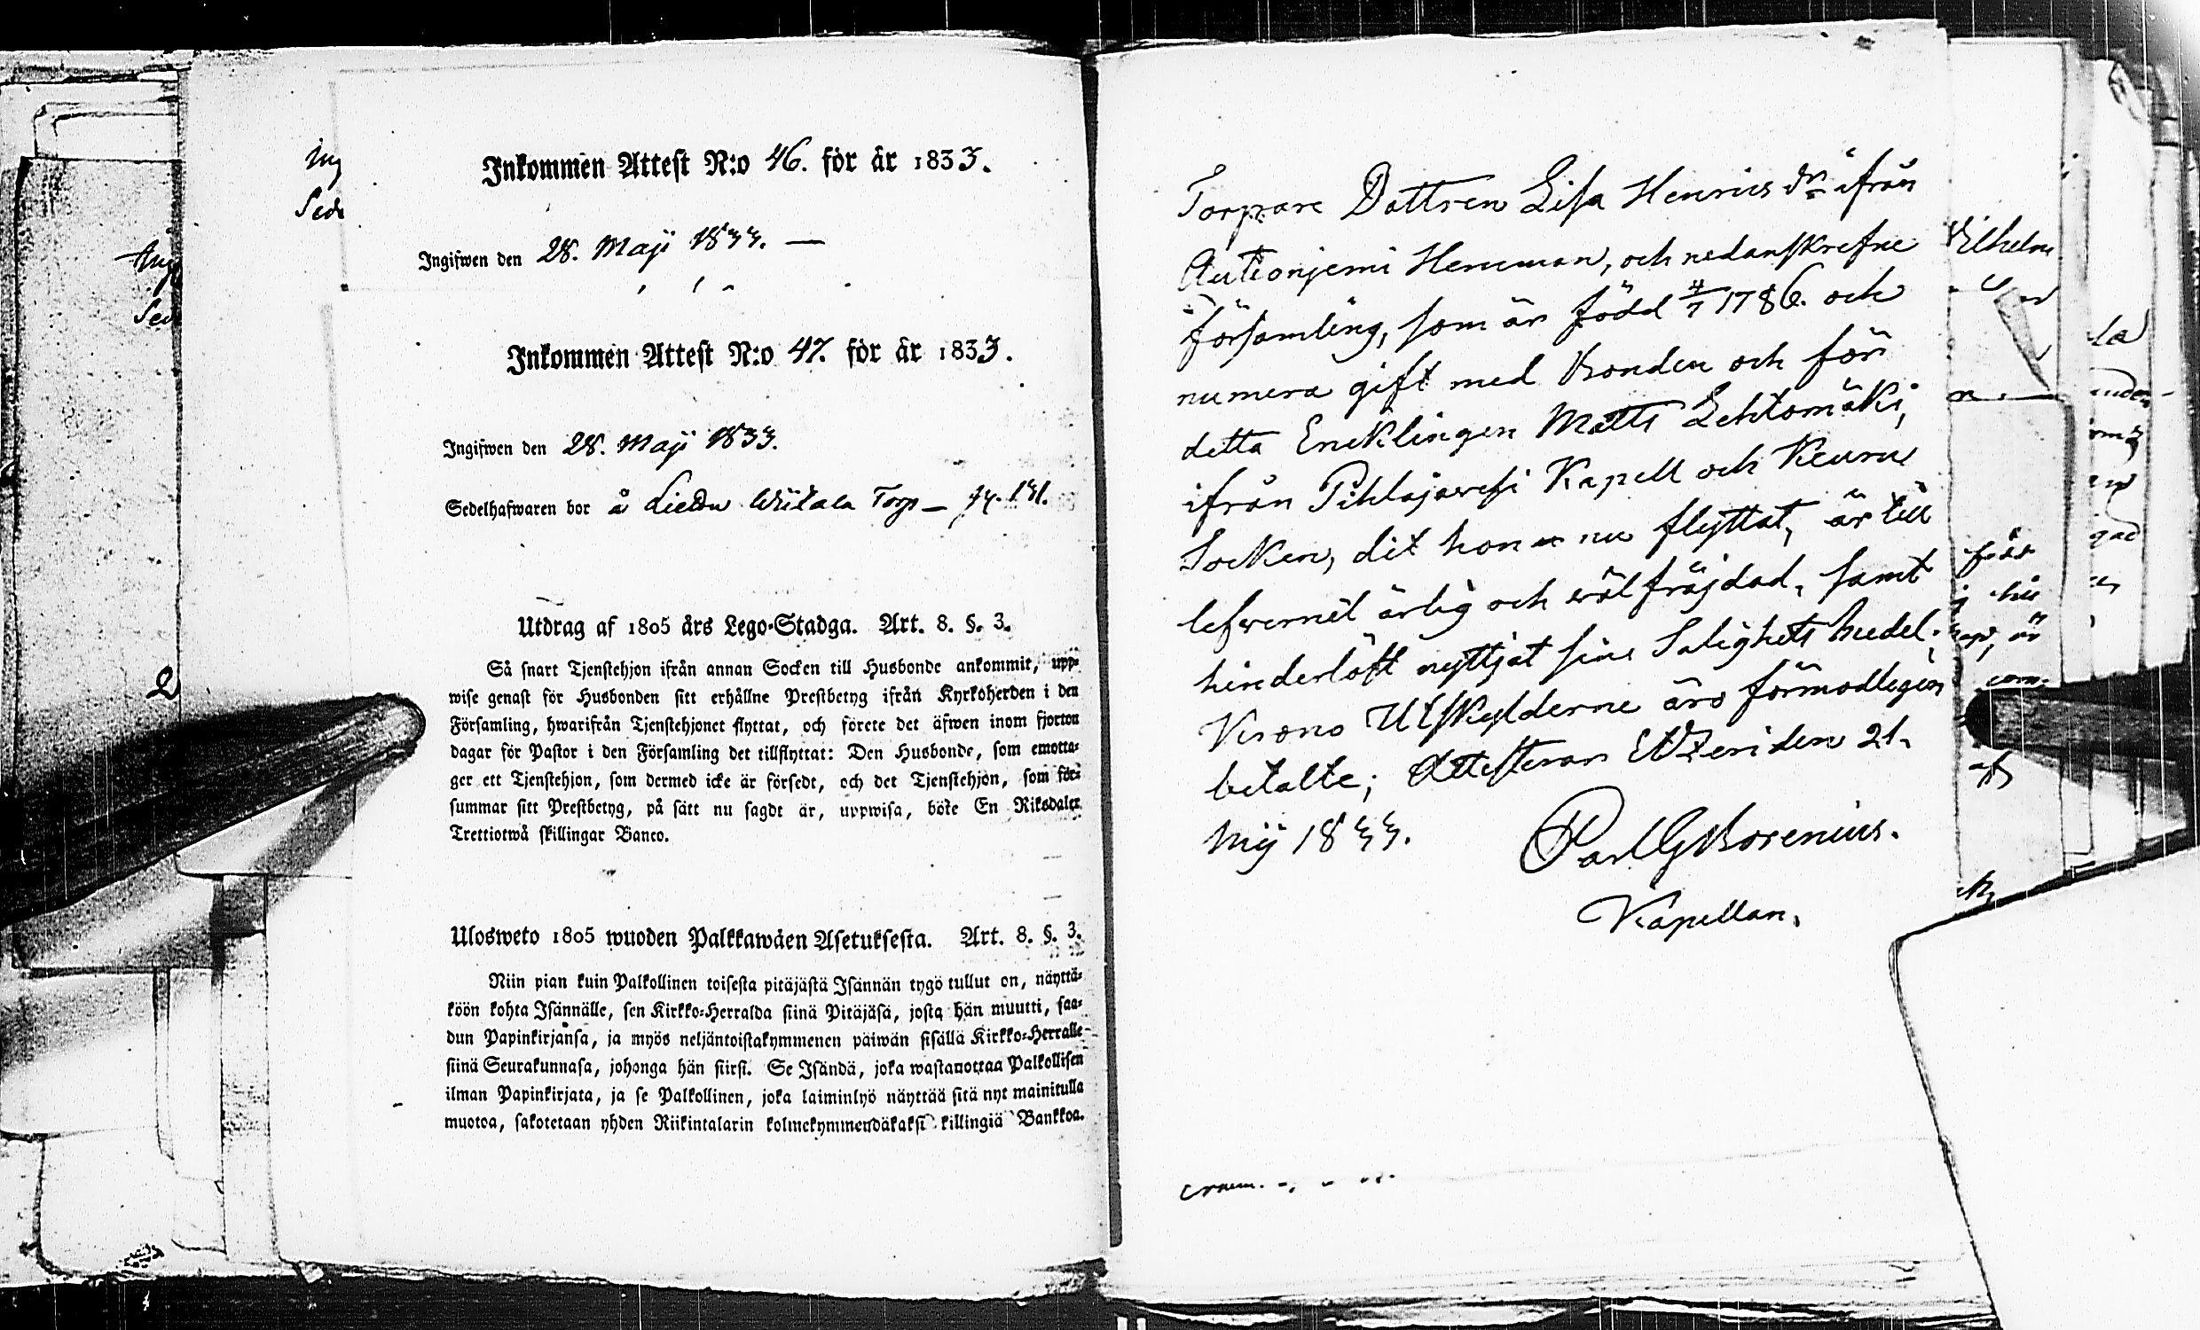 Inkommen Attest N:o 46. för år 1833.
Ingifwen den 28. Maji 1833. —
Inkommen Attest N:o 47. för år 1833.
Ingifwen den 28. Maji 1833.
Sedelhafwaren bor å Torp —
Utdrag af 1805 års Lego-Stadga. Art. 8. §. 3.
Så snart Tjenstehjon ifrån annan Socken till Husbonde ankommit, upp-
wise genast för Husbonden sitt erhållne Prestbetyg ifrån Kyrkoherden i den
Församling, hwarifrån Tjenstehjonet flyttat, och förete det äfwen inom fjorton
dagar för Pastor i den Församling det tillflyttat: Den Husbonde, som emotta-
ger ett Tjenstehjon, som dermed icke är försedt, och det Tjenstehjon, som för-
summar sitt Prestbetyg, på sätt nu sagdt är, uppwisa, böte En Riksdaler
Trettiotwå skillingar Banco.
Ulosweto 1805 wuoden Palkkawäen Asetuksesta. Art. 8. §. 3.
Niin pian kuin Palkollinen toisesta pitäjästä Isännän tygö tullut on, näyttä-
köön kohta Isännälle, sen Kirkko-Herralda siinä Pitäjäsä, josta hän muutti, saa-
dun Papinkirjansa, ja myös neljäntoistakymmenen päiwän sisällä Kirkko-Herralle
siinä Seurakunnasa, johonga hän siirsi. Se Isändä, joka wastanottaa Palkollisen
ilman Papinkirjata, ja se Palkollinen, joka laiminlyö näyttää sitä nyt mainitulla
muotoa, sakotetaan yhden Riikintalarin kolmekymmendäkaksi killingiä Bankkoa.
Torpare Dottren Lisa Henricsdr ifrån
Autionjemi Hemman, och nedanskrefne
församling, som är född 4/7 1786. och
numera gift med Bonden och för
detta Encklingen Matts Lehtomäki,
ifrån Pihlajawesi Kapell och Keuru
Socken, dit hon nu flyttat, är till
lefwernet ärlig och wälfräjdad, samt
hinderlöst nyttjat sine Salighets medel;
Krono Utskylderne äro förmodligen
betalte; Attesteras Etzeri den 21.
Mij 1833. Carl G Borenius.
Kapellan.